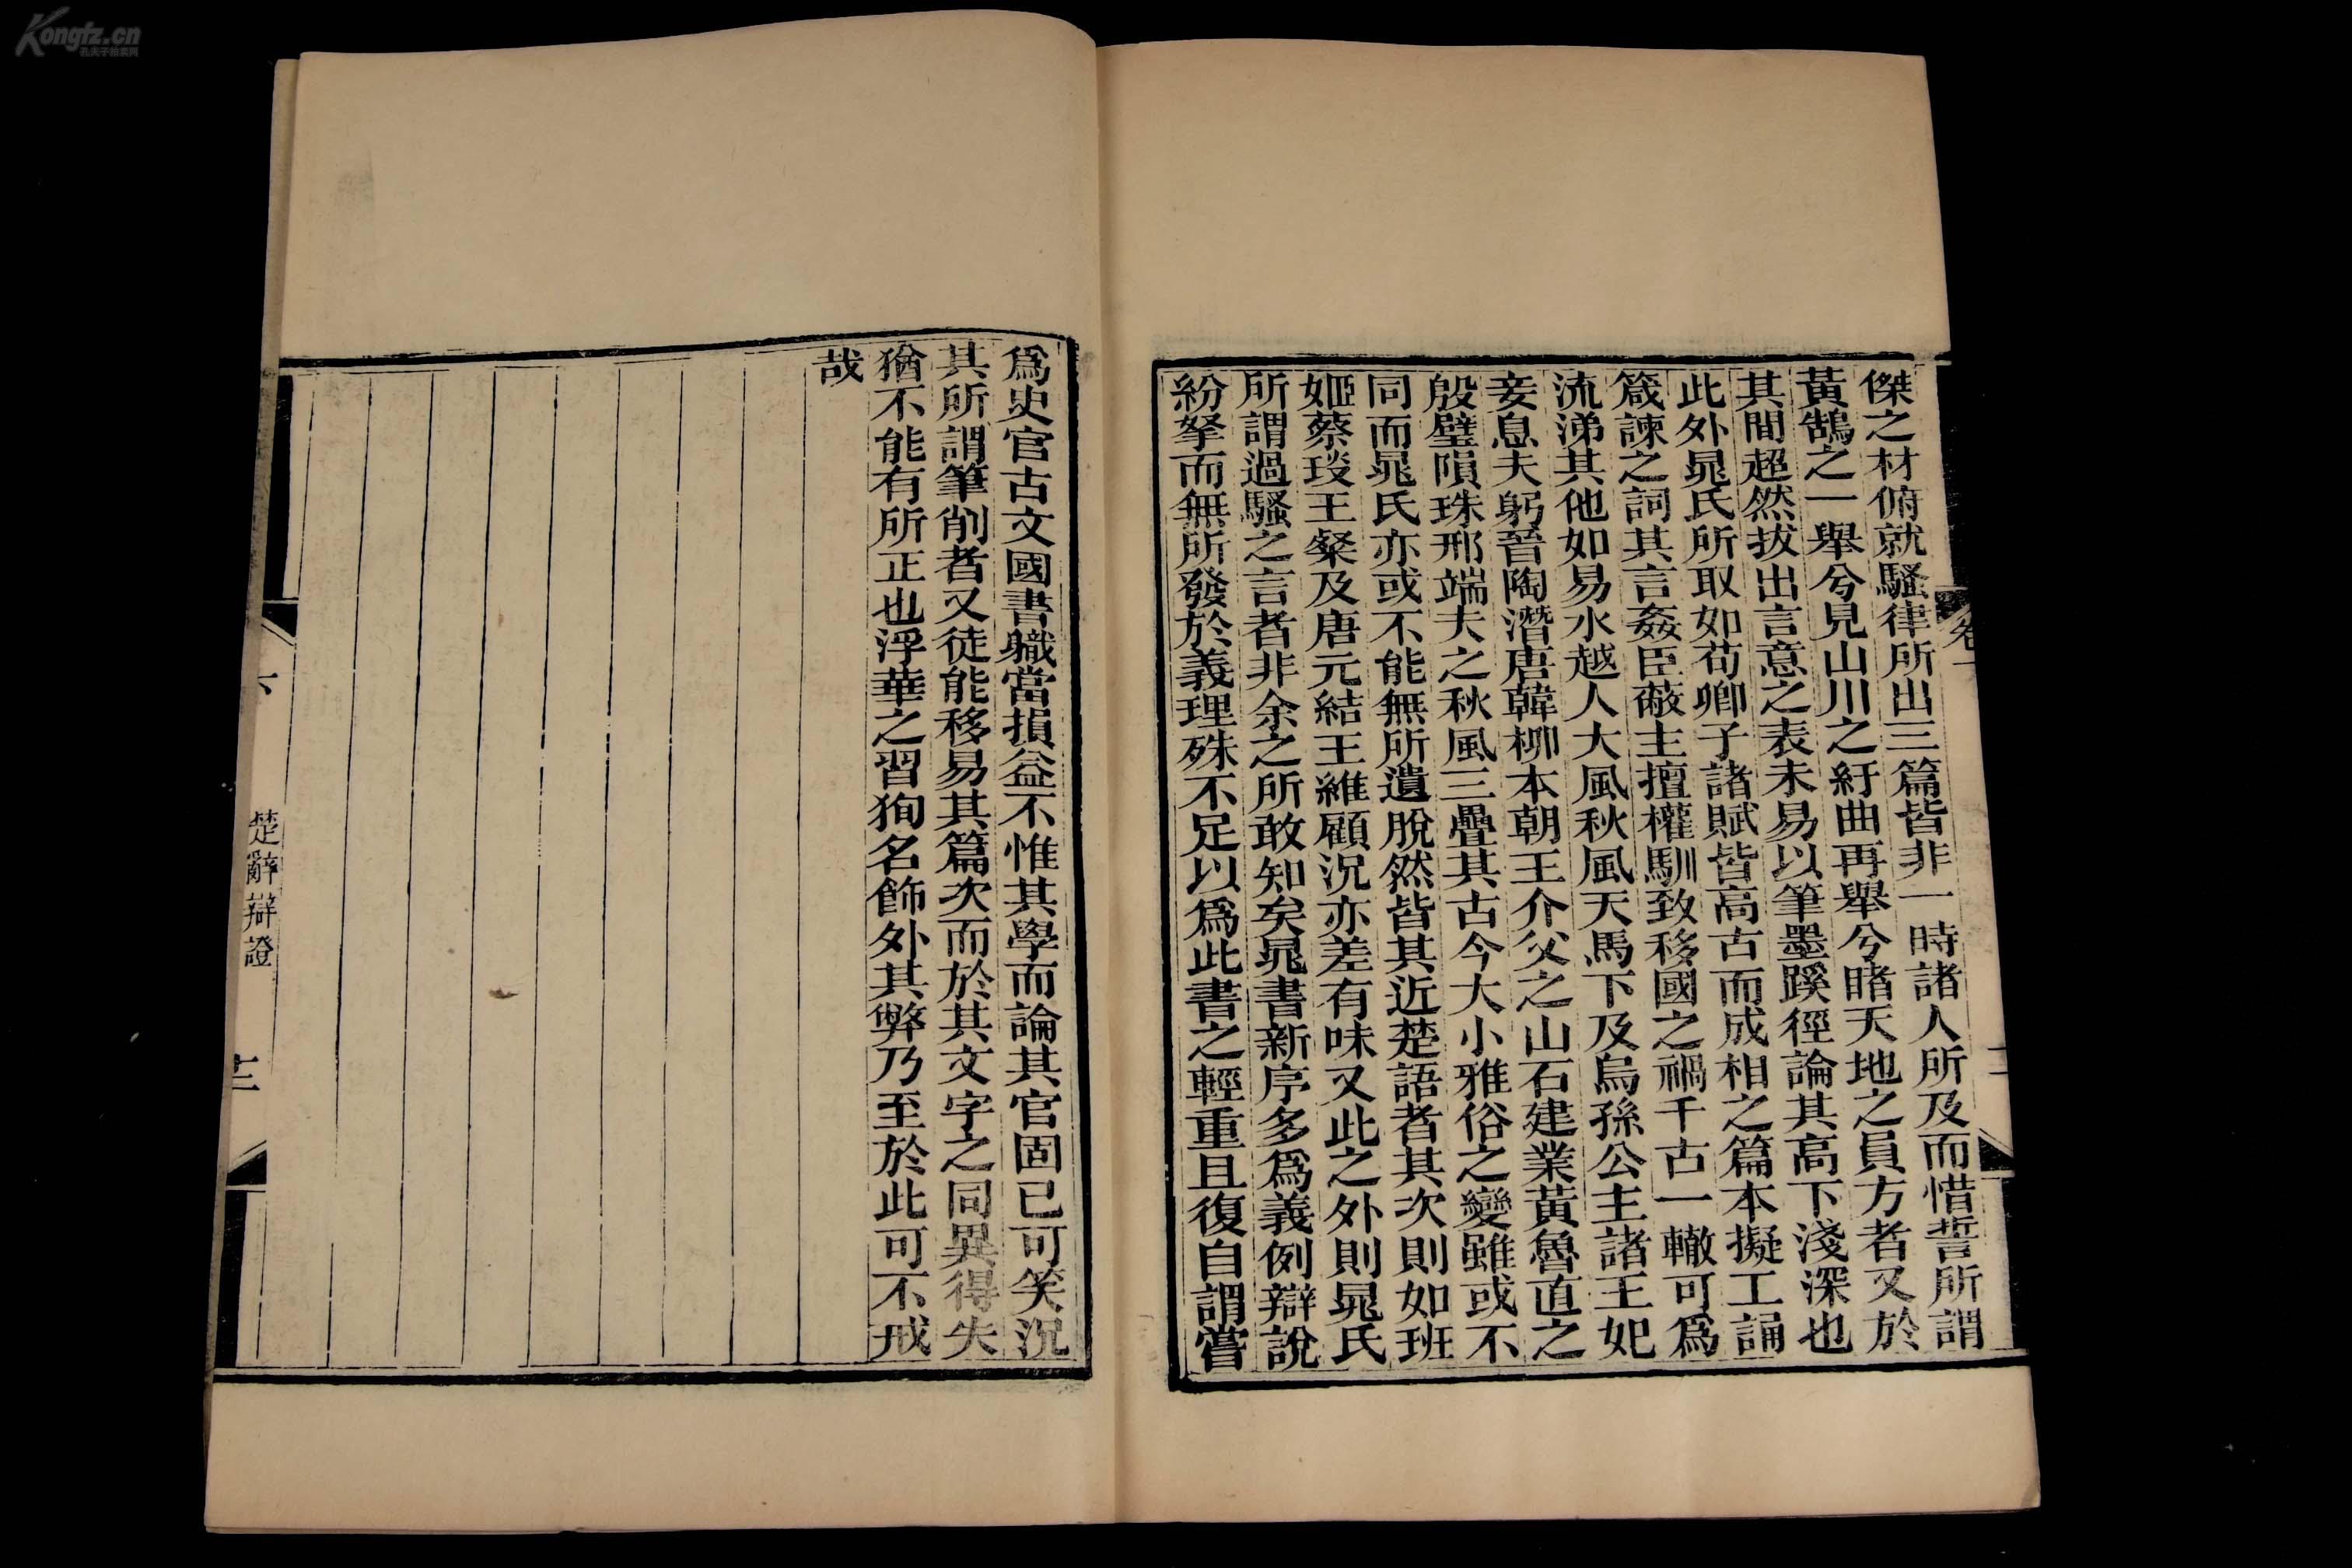 傑之材俯就騷律所出三篇皆非一時諸人所及而惜誓所謂
黃鵠之一舉兮見山川之紆曲再舉兮睹天地之員方者又於
其間超然拔出言意之表未易以筆墨蹊徑論其高下淺深也
此外晁氏所取如荀卿子諸賦皆高古而成相之篇本擬工誦
箴諫之詞其言姦臣蔽主擅權馴致移國之禍千古一轍可爲
流涕其他如易水越人大風秋風天馬下及烏孫公主諸王妃
妾息夫躬晉陶潛唐韓柳本朝王介父之山石建業黃魯直之
殷璧隕珠邢端夫之秋風三疊其古今大小雅俗之變雖或不
同而晁氏亦或不能無所遺脫然皆其近楚語者其次則如班
姬蔡琰王粲及唐元結王維顧況亦差有味又此之外則晁氏
所謂過騷之言者非余之所敢知矣晁書新序多爲義例辯說
紛拏而無所發於義理殊不足以爲此書之輕重且復自謂嘗
爲史官古文國書職當損益不惟其學而論其官固已可笑況
其所謂筆削者又徒能移易其篇次而於其文字之同異得失
猶不能有所正也浮華之習狥名飾外其弊乃至於此可不戒
哉
楚辭辯證
Kongfz.cn